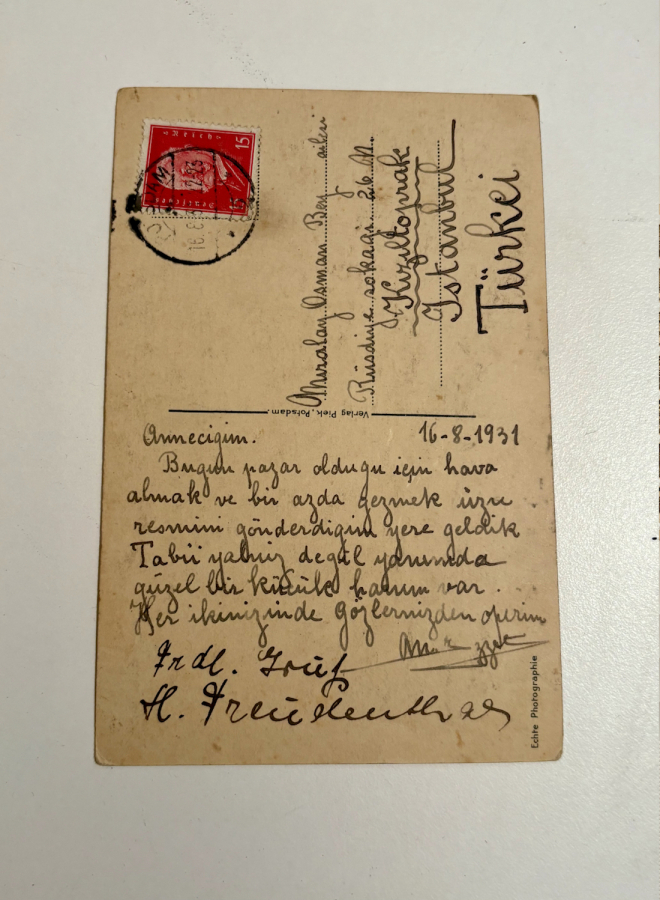 15
Deutsches Reich
Miralay Osman Bey ailesi
Rüsdiye sokagi 26 N.
Kızıltoprak
Istanbul
Türkei
Verlag Piek, Potsdam.
Annecigim. 16-8-1931
Bugun pazar oldugu için hava
almak ve bir azda gezmek üzre
resmini gönderdigim yere geldik
Tabii yalnız degül yanımda
güzel bir küçük hanım var.
Her ikinizinde gözlernizden operim
Frdl. Gruß
H. Freudenthal
Echte Photographie